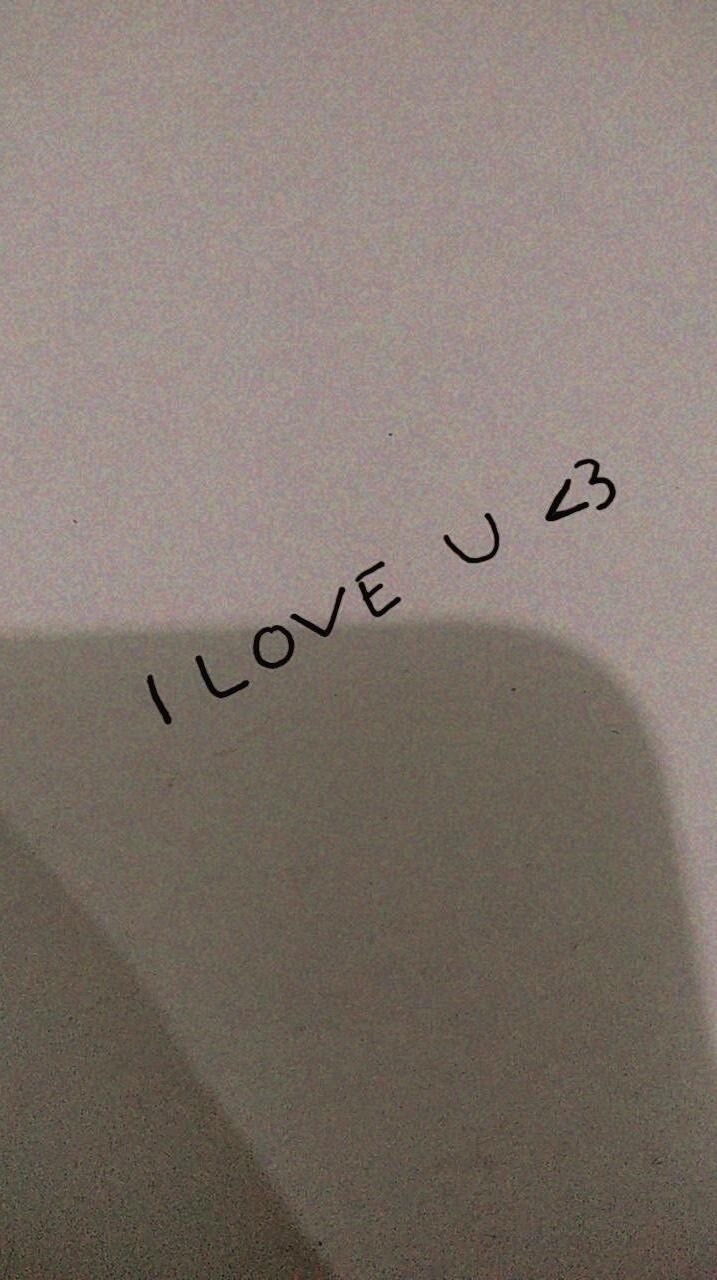 I LOVE U <3